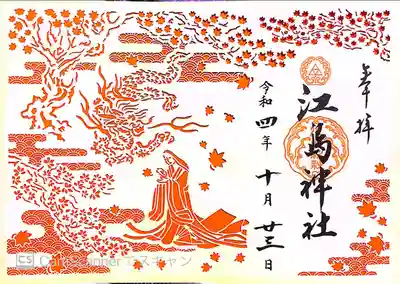 奉拝
江島神社
令和四年十月廿三日
CS CamScanner でスキャン